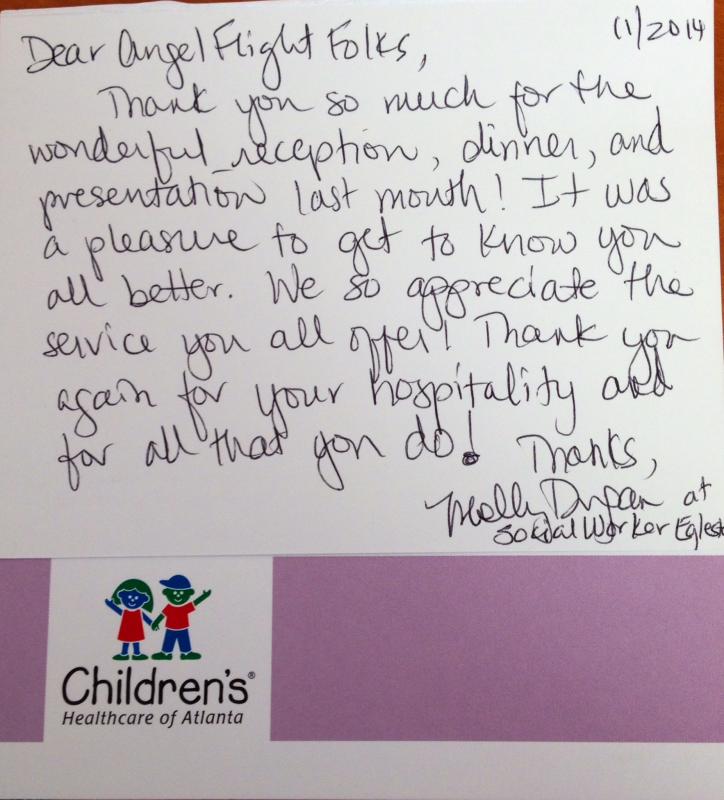 11/2014
Dear Angel Flight Folks,
Thank you so much for the
wonderful reception, dinner, and
presentation last month! It was
a pleasure to get to know you
all better. We so appreciate the
service you all offer! Thank you
again for your hospitality and
for all that you do! Thanks,
Molly Dugan at
Social Worker Eglest
Children's®
Healthcare of Atlanta